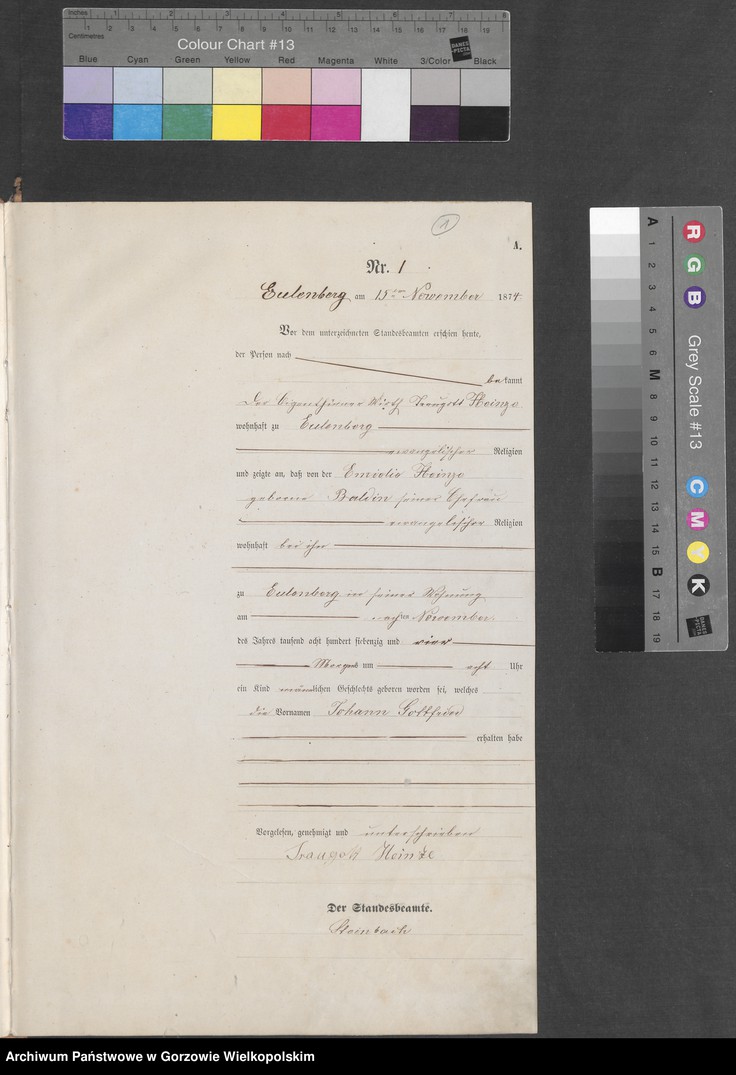 Inches 1 2 3 4 5 6 7 8
Centimetres 1 2 3 4 5 6 7 8 9 10 11 12 13 14 15 16 17 18 19
Colour Chart #13
DANES PICTA
Blue Cyan Green Yellow Red Magenta White 3/Color Black
1
A.
Nr. 1
Eulenberg am 15ten November 1874
Vor dem unterzeichneten Standesbeamten erschien heute,
der Person nach
bekannt
Der Eigenthümer Wirth Traugott Heinze
wohnhaft zu Eulenberg
evangelischer Religion
und zeigte an, daß von der Emielie Heinze
geborne Baldin seiner Ehefrau
evangelischer Religion
wohnhaft bei ihm
zu Eulenberg in seiner Wohnung
am achten November
des Jahres tausend acht hundert siebenzig und vier
Morgens um acht Uhr
ein Kind männlichen Geschlechts geboren worden sei, welches
die Vornamen Johann Gottfried
erhalten habe
Vorgelesen, genehmigt und unterschrieben
Traugott Heinze
Der Standesbeamte.
Steinbach
A 1 2 3 4 5 6 M 8 9 10 11 12 13 14 15 B 17 18 19
R G B
Grey Scale #13
C M Y K
DANES PICTA
Archiwum Państwowe w Gorzowie Wielkopolskim